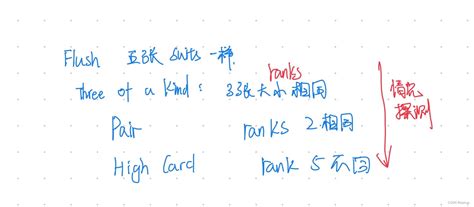 Flush 五张 suits 一样
ranks
three of a kind: 3张大小相同
Pair ranks 2相同
High Card rank 5不同
情况
探测